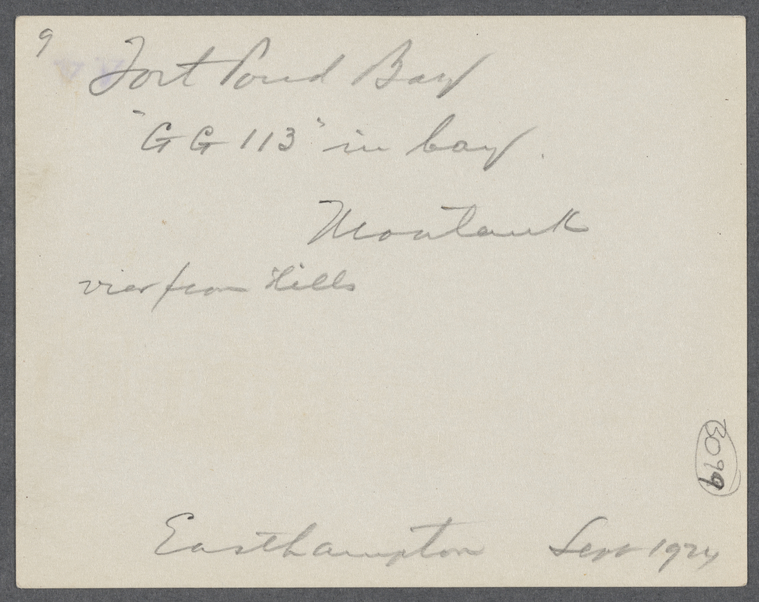 9
Fort Pond Bay
"G G 113" in bay.
Montauk
view from Hills
3099
Easthampton Sept 1924